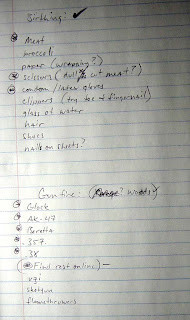 Birthing: ✓
Meat
broccoli
paper (wrapping?)
scissors (dull / cut meat?)
condom / latex gloves
clippers (try toe & fingernail)
glass of water
hair
shoes
nails on sheets?
Gunfire: (? Woods)
Glock
AK-47
Beretta
357
38
(Find rest online) —
uzi
shotgun
flamethrowers